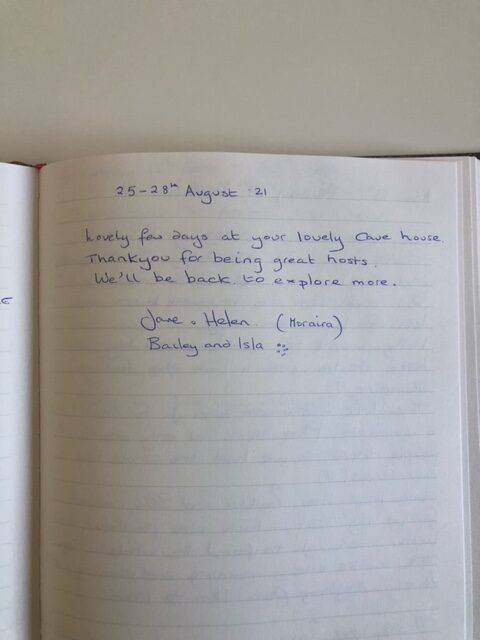 25-28th August 21
Lovely few days at your lovely Cave house.
Thankyou for being great hosts.
We'll be back. to explore more.
Jane & Helen. (Moraira)
Bailey and Isla